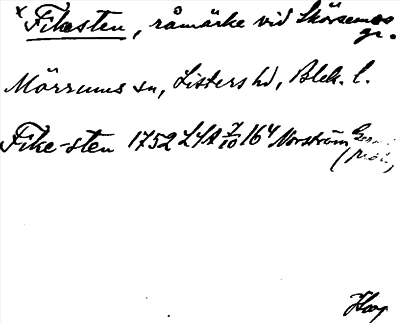 x Fikesten, råmärke vid Skörsemos gr.
Mörrums sn, Listers hd, Blek. l.
Fike-sten 1752 LSA 7/10 16⁴ Norström
Haag